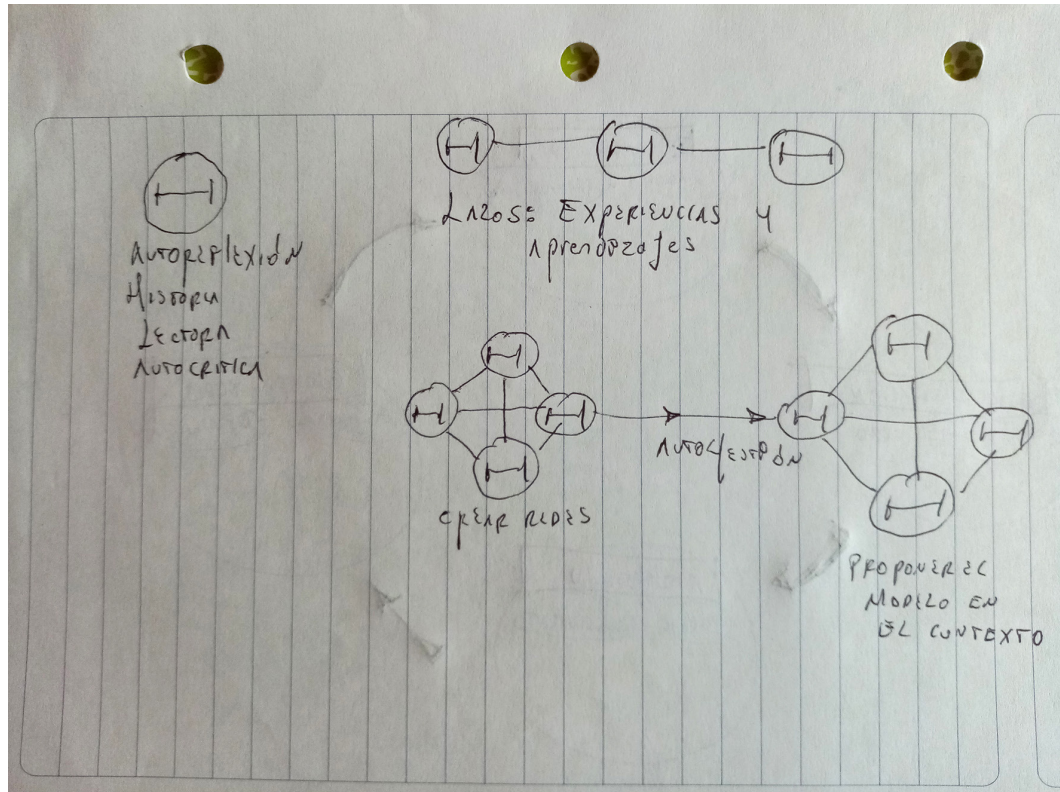 AUTOREFLEXIÓN
HISTORIA
LECTORA
AUTOCRITICA
LAZOS: EXPERIENCIAS Y
Aprendizajes
CREAR REDES
AUTOGESTIÓN
PROPONER EL
MODELO EN
EL CONTEXTO